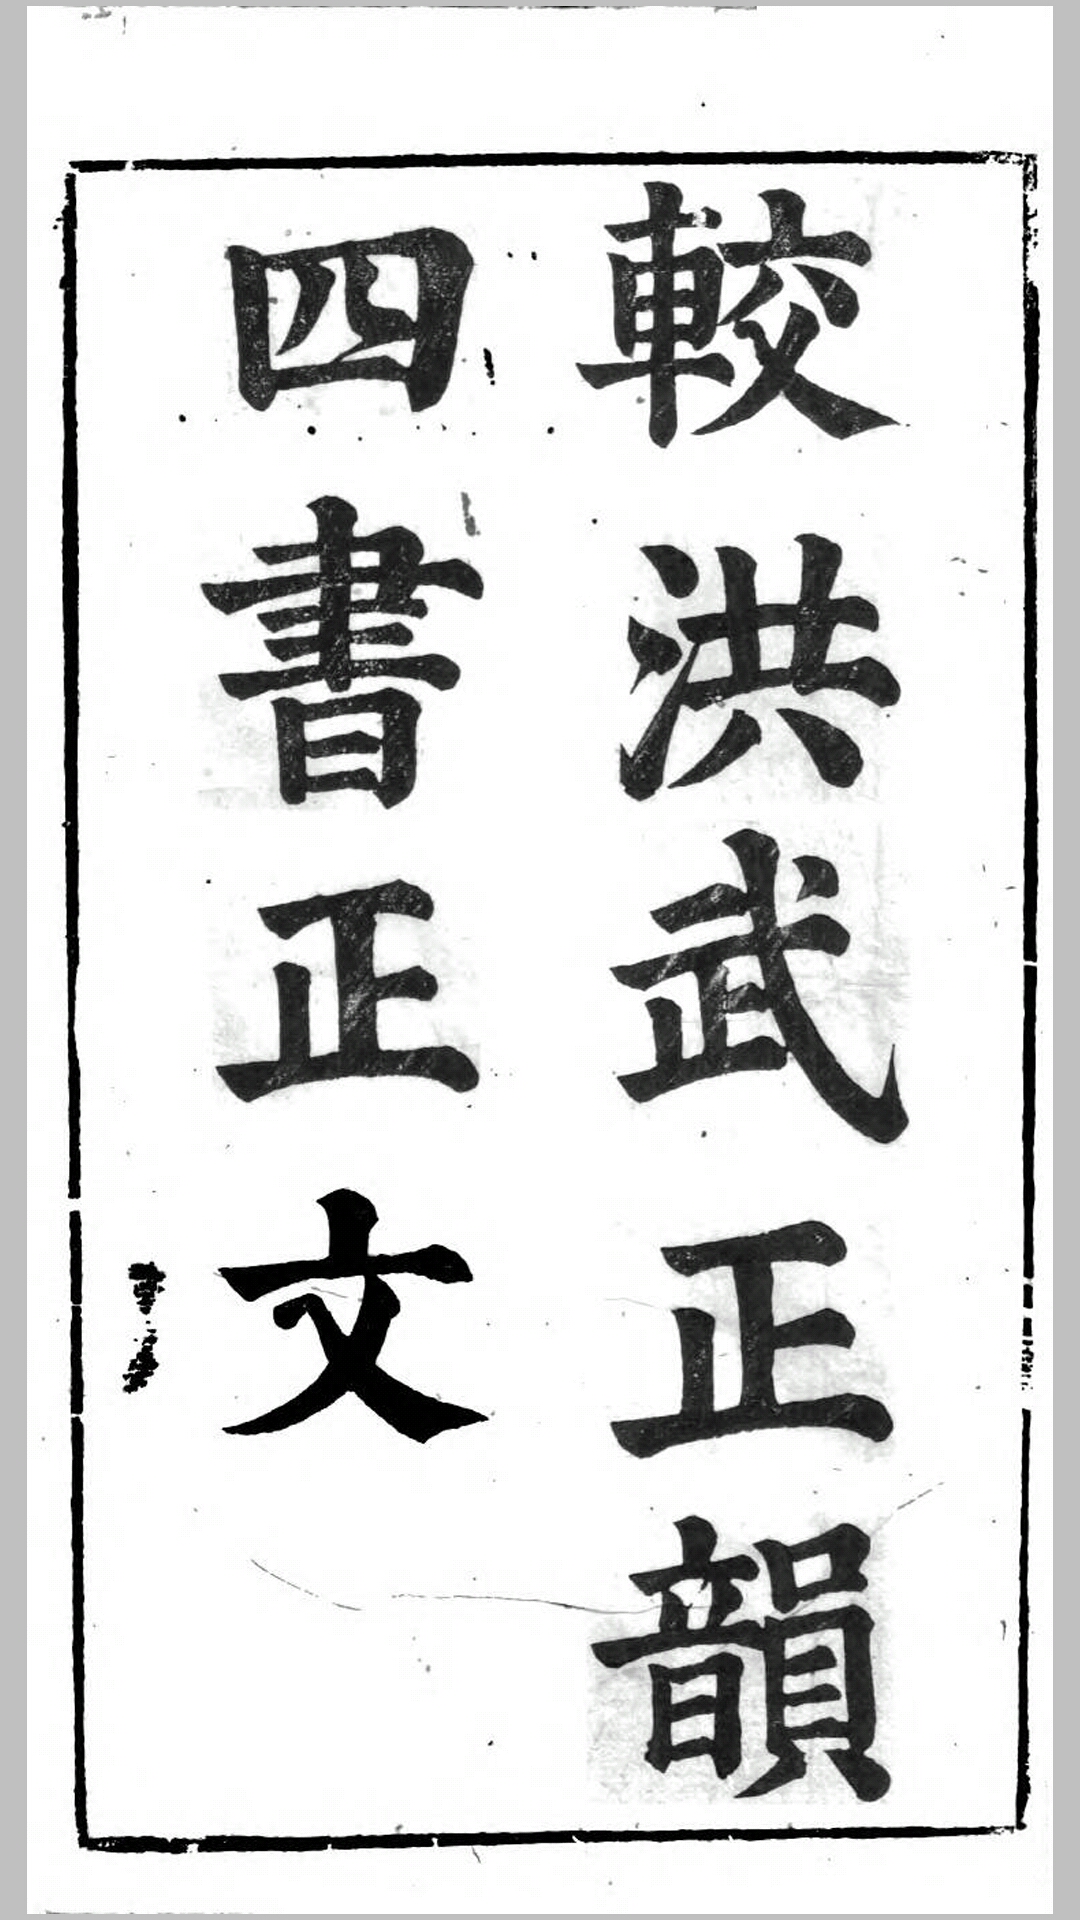 較洪武正韻
四書正文